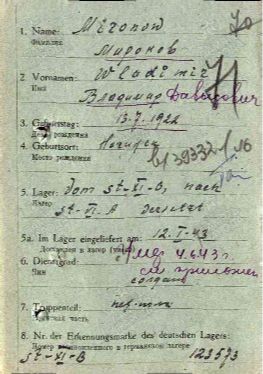 1. Name: Mironow 70
Фамилия Миронов
2. Vornamen: Wladimir
Имя Владимир Давыдович
71
3. Geburtstag: 13.7.1922
Дата рождения
4. Geburtsort:
Место рождения
в/39332/16
5. Lager: Vom St-XI-B, nach
Лагерь St-XI-A versetzt
5a. Im Lager eingeliefert am: 12.I-43
Доставлен в лагерь
6. Dienstgrad: Умер 4.6.43 г.
Чин солдат
7. Truppenteil:
часть
8. Nr. der Erkennungsmarke des deutschen Lagers:
Номер в германском лагере
St-XI-B 123573